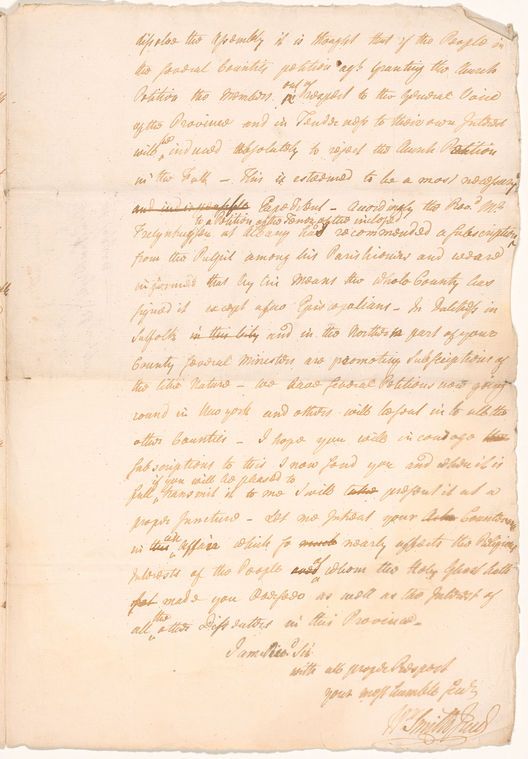 dissolve the Assembly it is thought that if the People in
the several Counties petition ag.t Granting the Church
Petition the Members out of Respect to the General Voice
of the Province and in Tenderness to their own Interest
will be induced absolutely to reject the Church Petition
in the Fall – This is esteemed to be a most necessary
Expedient – Accordingly the Rev.d Mr
to a Petition of the Tenor of the inclosed
Frelynhuysen at Albany had recommended a Subscription
from the Pulpit among his Parishioners and we are
informed that by his means the whole County has
signed it except a few Episcopalians – In Dutchess in
Suffolk in this City and in the Northern part of your
County several Ministers are promoting Subscriptions of
the like Nature – We have several Petitions now going
round in New york and others will be sent in to all the
other Counties – I hope you will incourage the
Subscriptions to this I now send you and when it is
if you will be pleased to
full transmit it to me I will take present it at a
proper Juncture – Let me Intreat your Countenance
in this affair which so much nearly affects the Religious
Interests of the People over of whom the Holy Ghost hath
made you Overseer as well as the Interest of
all the other Dissenters in this Province –
I am Rev.d Sir
with all proper Respect
your most humble Serv.t
W.m Smith Jun.r